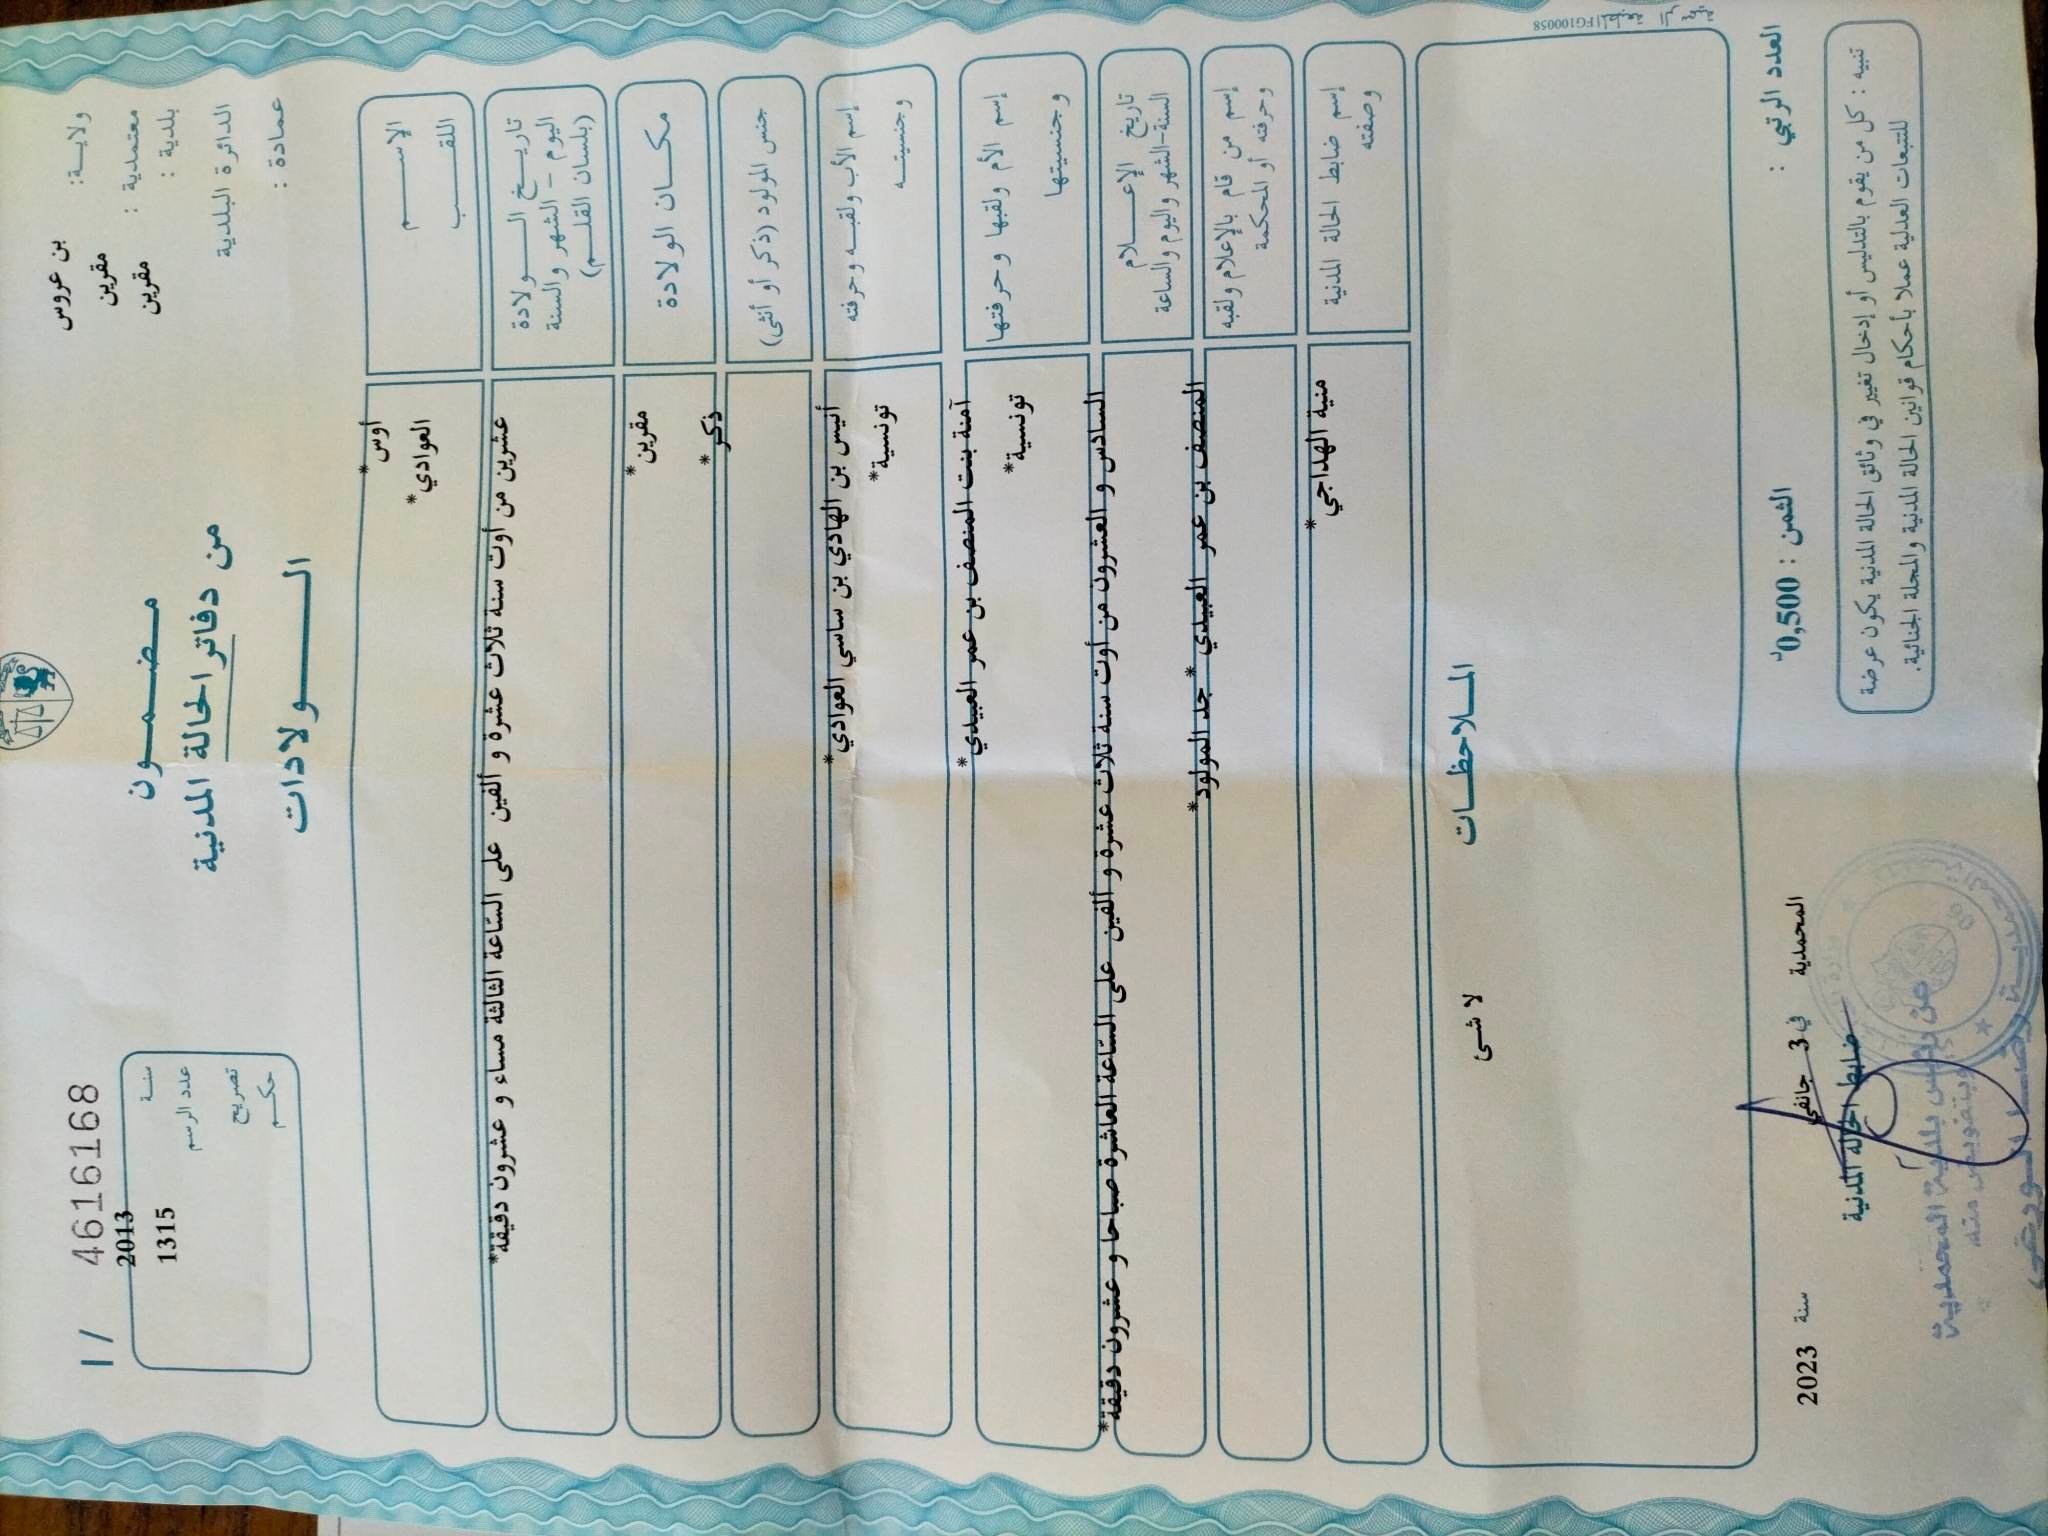 ولاية: بن عروس
معتمدية : مقرين
بلدية : مقرين
الدائرة البلدية
عمادة :
مضمون
من دفاتر الحالة المدنية
الولادات
1/ 4616168
سنة 2013
عدد الرسم 1315
تصريح
حكم
الإسم *أوس
اللقب *العوادي
تاريخ الولادة
اليوم - الشهر والسنة
(بلسان القلم)
عشرين من أوت سنة ثلاث عشرة و ألفين على الساعة الثالثة مساء و عشرون دقيقة*
مكان الولادة
*مقرين
جنس المولود (ذكر أو أنثى)
*ذكر
إسم الأب ولقبه وحرفته
وجنسيته
أنيس بن الهادي بن ساسي العوادي*
تونسية*
إسم الأم ولقبها وحرفتها
وجنسيتها
آمنة بنت المنصف بن عمر العبيدي*
تونسية*
تاريخ الإعلام
السنة-الشهر واليوم والساعة
السادس و العشرون من أوت سنة ثلاث عشرة و ألفين على الساعة العاشرة صباحا و عشرون دقيقة*
إسم من قام بالإعلام ولقبه
وحرفته أو المحكمة
المنصف بن عمر العبيدي *جد المولود*
إسم ضابط الحالة المدنية
وصفته
منية الهداجي*
الملاحظات
لا شئ
المطبعة الرسمية FG100058
العدد الرتبي :
الثمن : 0,500د
المحمدية في 3 جانفي سنة 2023
ضابط الحالة المدنية
عن رئيس بلدية المحمدية
وبتفويض منه
تنبيه : كل من يقوم بالتدليس أو إدخال تغيير في وثائق الحالة المدنية يكون عرضة
للتتبعات العدلية عملا بأحكام قوانين الحالة المدنية والمجلة الجنائية.